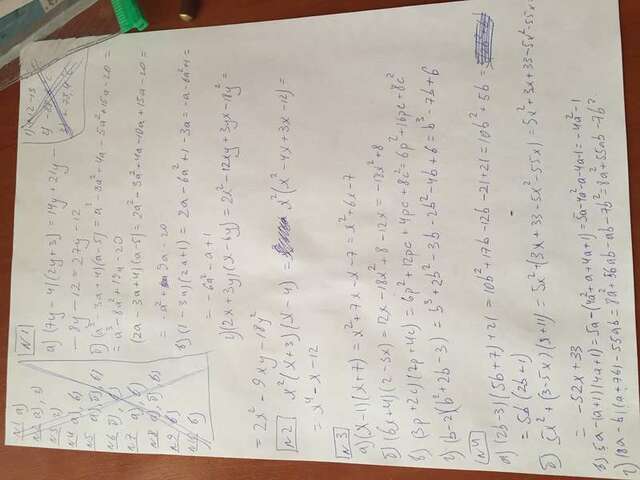 N1 а)
N2 а), г)
N3 г)
N4 а), в)
N5 а), б), в)
N6 б), в)
N7 а), в)
N8 а), б), в)
N9 в)
в)
N1
а) (7y - 4)(2y + 3) = 14y + 21y -
- 8y - 12 = 27y - 12
б) (a² - 3a + 4)(a - 5) = a³ - 3a² + 4a - 5a² + 15a - 20 =
= a³ - 8a² + 19a - 20
(2a - 3a + 4)(a - 5) = 2a² - 3a² + 4a - 10a + 15a - 20 =
= -a² + 9a - 20
в) (1 - 3a)(2a + 1) = 2a - 6a² + 1 - 3a = -a - 6a² + 1 =
= -6a² - a + 1
г) (2x + 3y)(x - 6y) = 2x² - 12xy + 3yx - 18y² =
= 2x² - 9xy - 18y²
N2 x²(x + 3)(x - 4) = x²(x² - 4x + 3x - 12) =
= x⁴ - x - 12
N3
а) (x - 1)(x + 7) = x² + 7x - x - 7 = x² + 6x - 7
б) (6x + 4)(2 - 3x) = 12x - 18x² + 8 - 12x = -18x² + 8
в) (3p + 2c)(2p + 4c) = 6p² + 12pc + 4pc + 8c² = 6p² + 16pc + 8c²
г) (b - 2)(b² + 2b - 3) = b³ + 2b² - 3b - 2b² - 4b + 6 = b³ - 7b + 6
N4
а) (2b - 3)(5b + 7) + 21 = 10b² + 17b - 12b - 21 + 21 = 10b² + 5b =
= 5b (2b + 1)
б) 5x² + (3 - 5x)(x + 11) = 5x² + (3x + 33 - 5x² - 55x) = 5x² + 3x + 33 - 5x² - 55x =
= -52x + 33
в) 5a - (a + 1)(4a + 1) = 5a - (4a² + a + 4a + 1) = 5a - 4a² - a - 4a - 1 = -4a² - 1
г) (8a - b)(a + 7b) - 55ab = 8a² + 56ab - ab - 7b² = 8a² + 55ab - 7b²